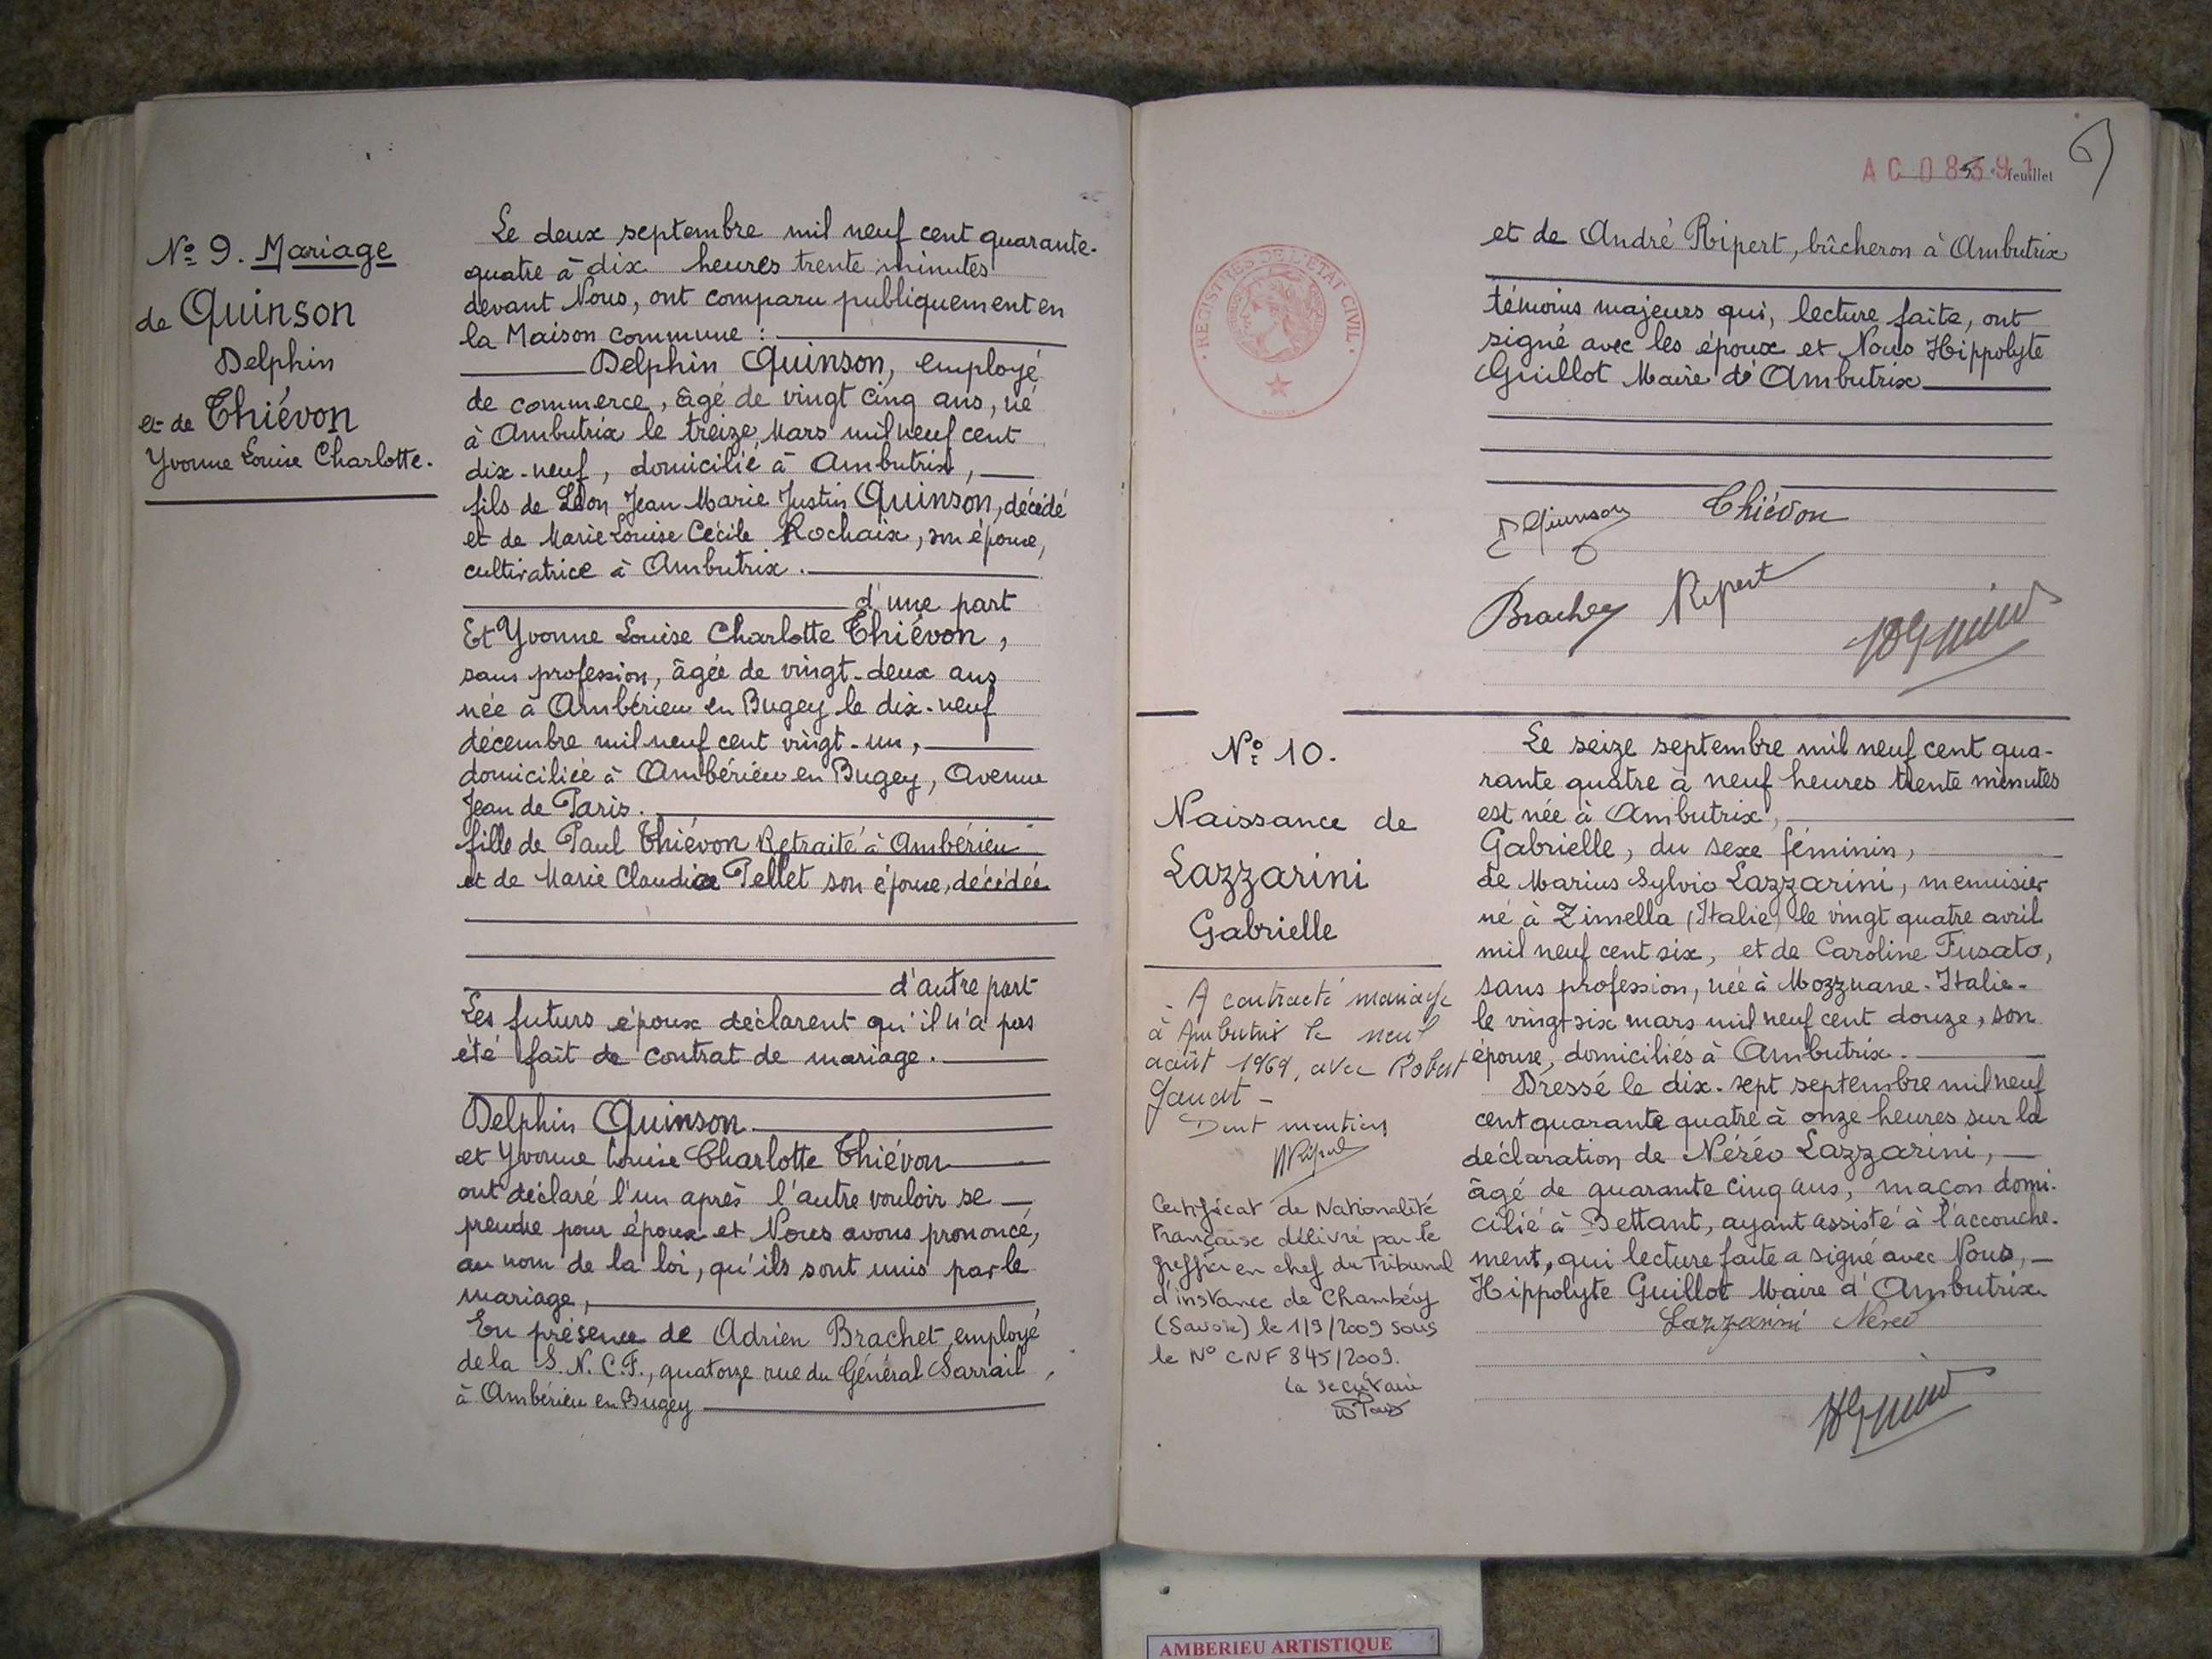 Nº 9. Mariage
de Quinson
Delphin
et de Thiévon
Yvonne Louise Charlotte.
Le deux septembre mil neuf cent quarante-
quatre à dix heures trente minutes
devant Nous, ont comparu publiquement en
la Maison commune :
Delphin Quinson, employé
de commerce, âgé de vingt cinq ans, né
à Ambutrix le treize Mars mil neuf cent
dix-neuf, domicilié à Ambutrix,
fils de Léon Jean Marie Justin Quinson, décédé
et de Marie Louise Cécile Rochaix, son épouse,
cultivatrice à Ambutrix.
d'une part
Et Yvonne Louise Charlotte Thiévon,
sans profession, âgée de vingt-deux ans
née à Ambérieu en Bugey le dix-neuf
décembre mil neuf cent vingt-un,
domiciliée à Ambérieu en Bugey, Avenue
Jean de Paris.
fille de Paul Thiévon Retraité à Ambérieu
et de Marie Pellet son épouse, décédée
d'autre part
Les futurs époux déclarent qu'il n'a pas
été fait de contrat de mariage.
Delphin Quinson
et Yvonne Louise Charlotte Thiévon
ont déclaré l'un après l'autre vouloir se
prendre pour époux et Nous avons prononcé,
au nom de la loi, qu'ils sont unis par le
mariage,
En présence de Adrien Brachet, employé
de la S.N.C.F., quatorze rue du Général Sarrail,
à Ambérieu en Bugey
feuillet
et de André Ripert, bûcheron à Ambutrix
témoins majeurs qui, lecture faite, ont
signé avec les époux et Nous Hippolyte
Guillot Maire d'Ambutrix
REGISTRES DE L'ÉTAT CIVIL
D Quinson Thiévon
Brachet Ripert
Nº 10.
Naissance de
Lazzarini
Gabrielle
- A contracté mariage
à Ambutrix le neuf
août 1969, avec Robert
Dont mention
Certificat de Nationalité
Française délivré par le
greffier en chef du Tribunal
d'instance de Chambéry
(Savoie) le 1/9/2009 sous
le Nº CNF 845/2009.
La secrétaire
Le seize septembre mil neuf cent qua-
rante quatre à neuf heures trente minutes
est née à Ambutrix,
Gabrielle, du sexe féminin,
de Marius Sylvio Lazzarini, menuisier
né à Zimella (Italie) le vingt quatre avril
mil neuf cent six, et de Caroline Fusato,
sans profession, née à Mozzuane-Italie-
le vingt-six mars mil neuf cent douze, son
épouse, domiciliés à Ambutrix.
Dressé le dix-sept septembre mil neuf
cent quarante quatre à onze heures sur la
déclaration de Néréo Lazzarini,
âgé de quarante cinq ans, maçon domi-
cilié à Bettant, ayant assisté à l'accouche-
ment, qui lecture faite a signé avec Nous,
Hippolyte Guillot Maire d'Ambutrix
Lazzarini Nereo
AMBERIEU ARTISTIQUE